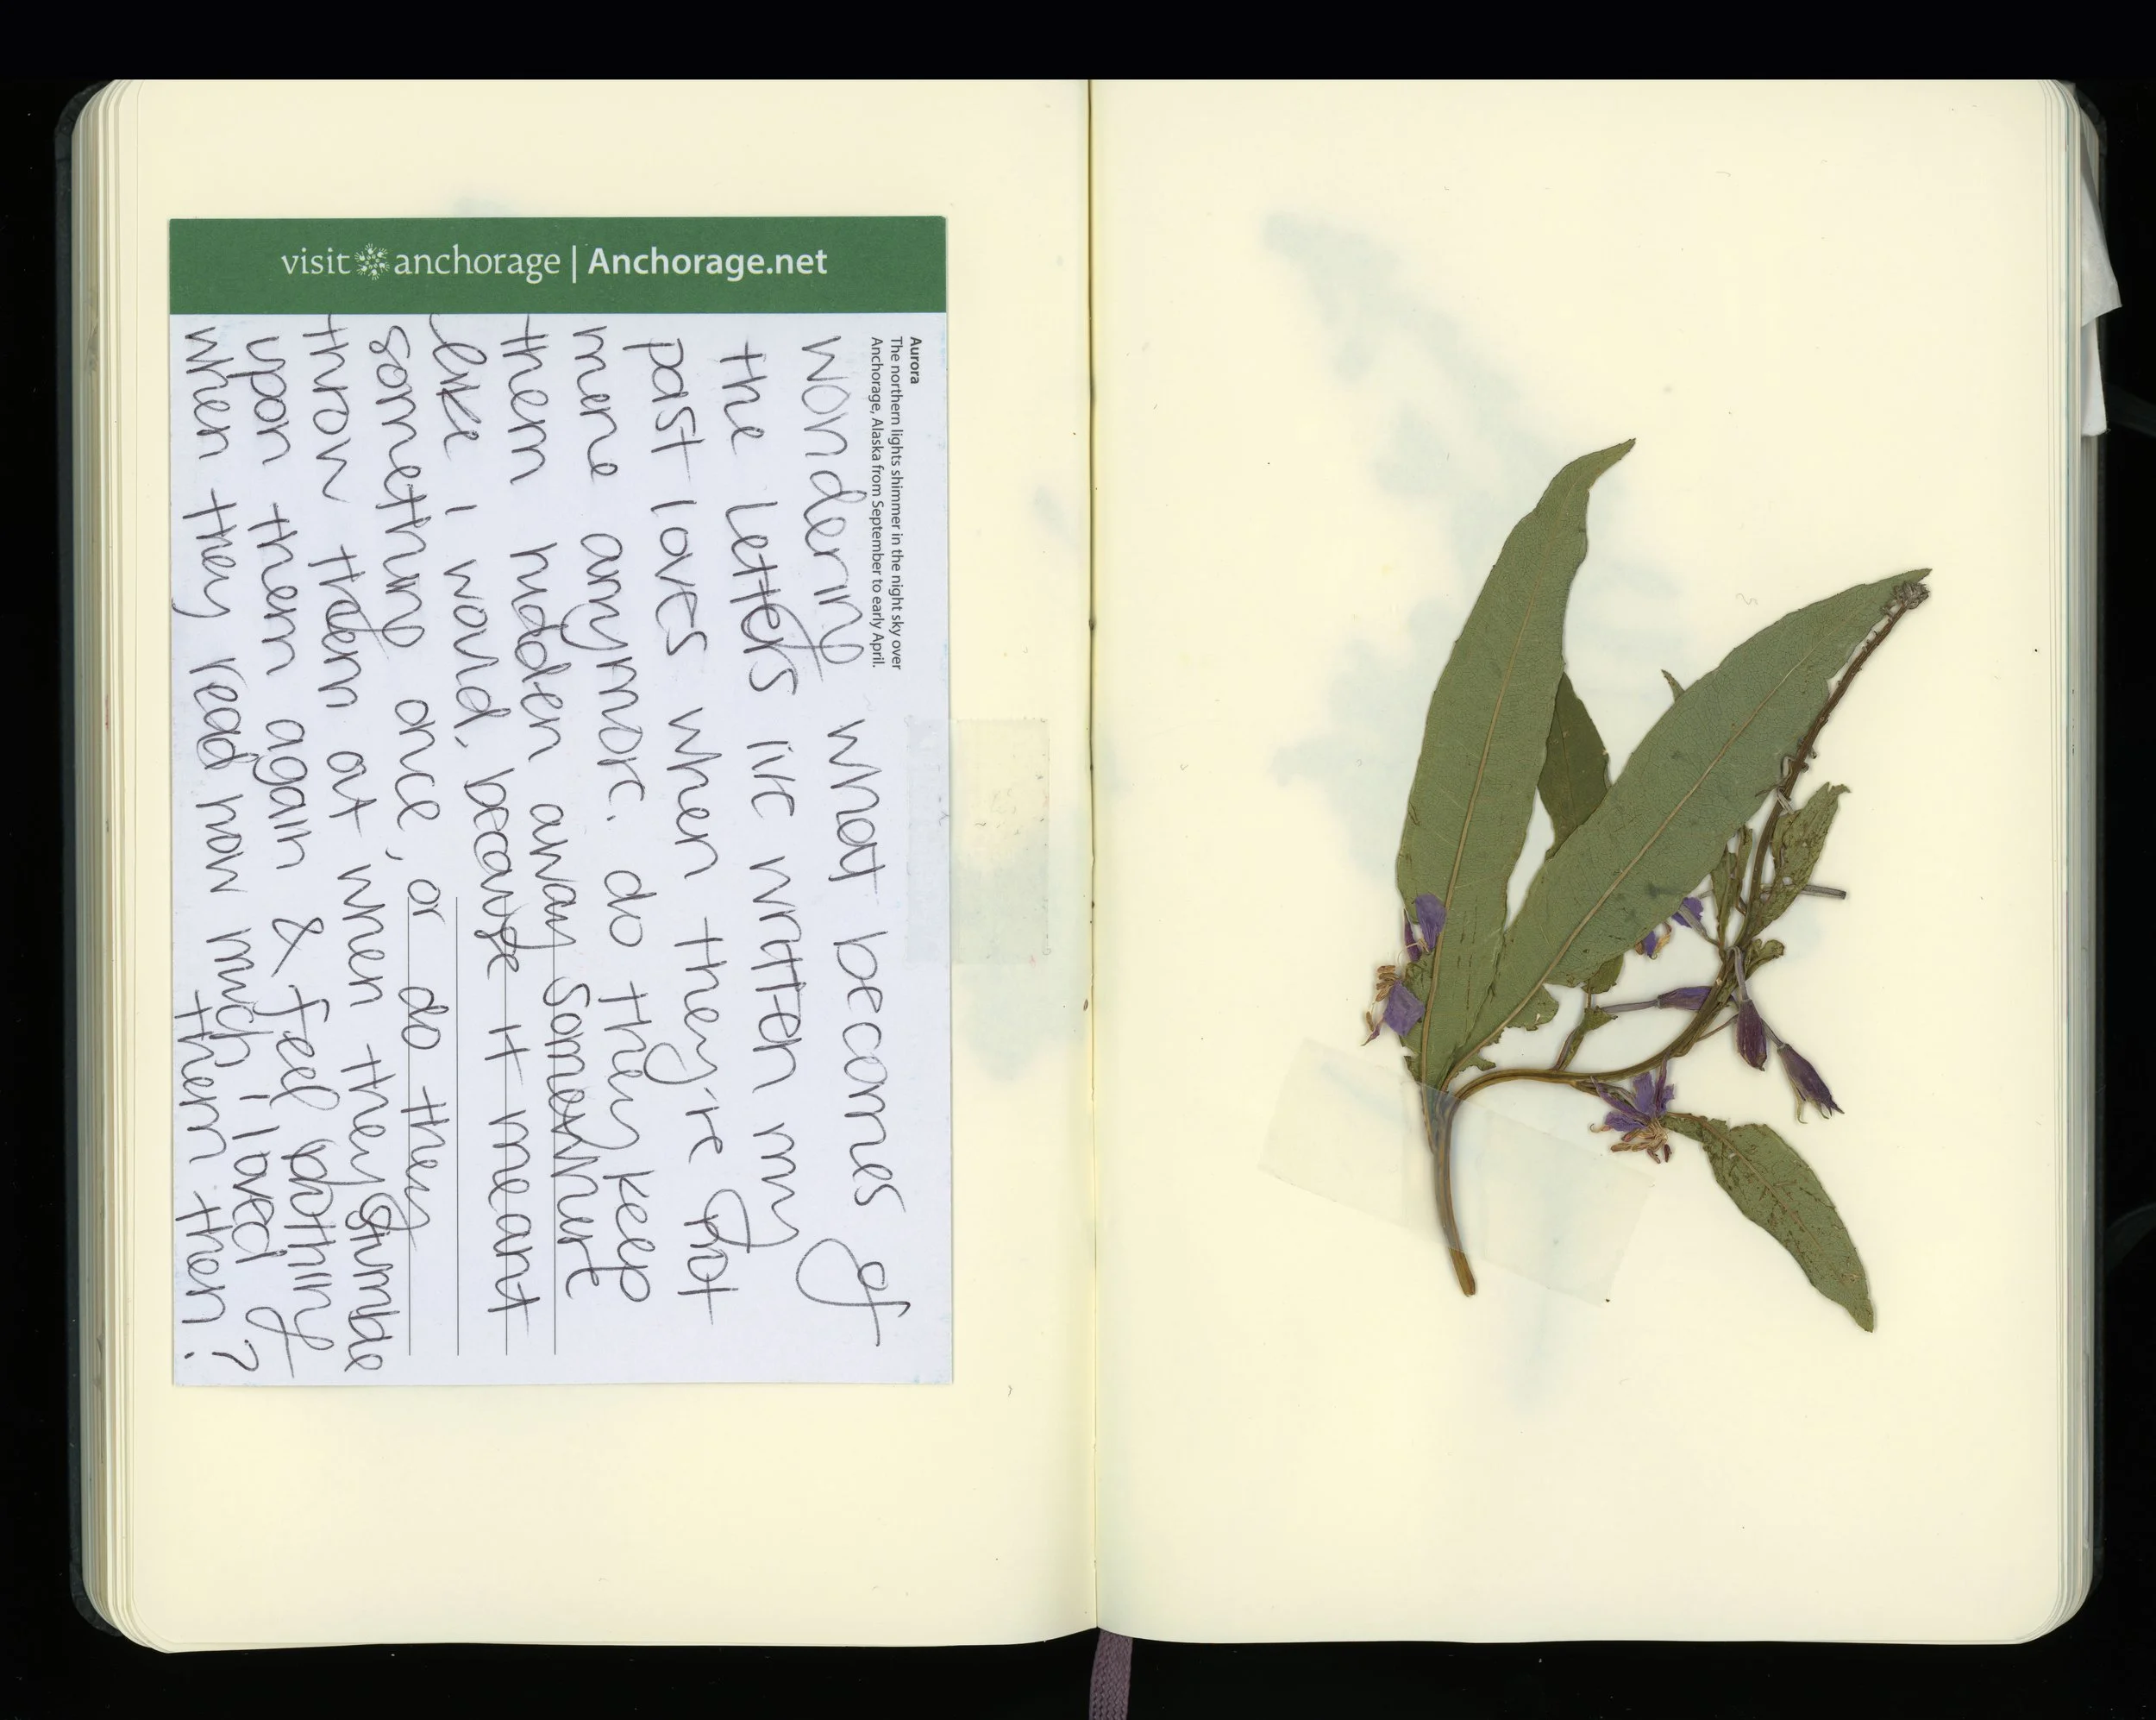 visit anchorage | Anchorage.net
Aurora
The northern lights shimmer in the night sky over
Anchorage, Alaska from September to early April.
wondering what becomes of
the letters i've written my
past loves when they're not
mine anymore. do they keep
them hidden away somewhere
like i would, because it meant
something once, or do they
throw them out when they stumble
upon them again & feel nothing
when they read how much i loved
them then?